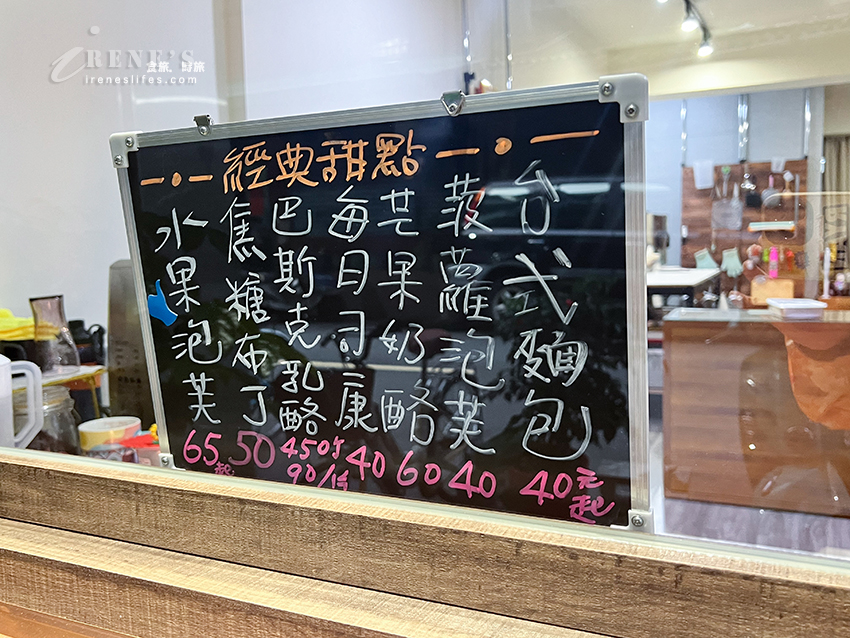 IRENE'S
食旅．時旅
ireneslifes.com
經典甜點
台式麵包
40元起
菠蘿泡芙
40
芒果奶酪
60
每日司康
40
巴斯克乳酪
450/
90/
焦糖布丁
50
水果泡芙
65起